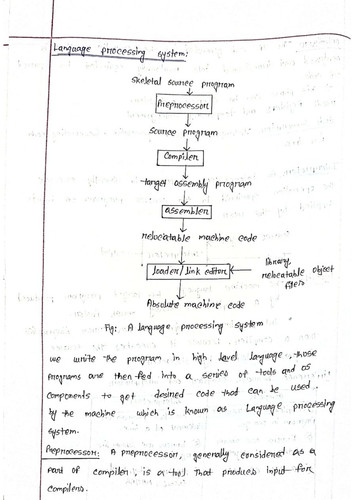 Language processing system:
Skeletal source program
Preprocessor
source program
Compiler
target assembly program
assembler
relocatable machine code
loader/link editor
library,
relocatable object
files
Absolute machine code
Fig: A language processing system
we write the program in high level language, those
programs are then fed into a series of tools and OS
components to get desired code that can be used
by the machine which is known as Language processing
system.
Preprocessor: A preprocessor, generally considered as a
part of compiler, is a tool that produces input for
compilers.